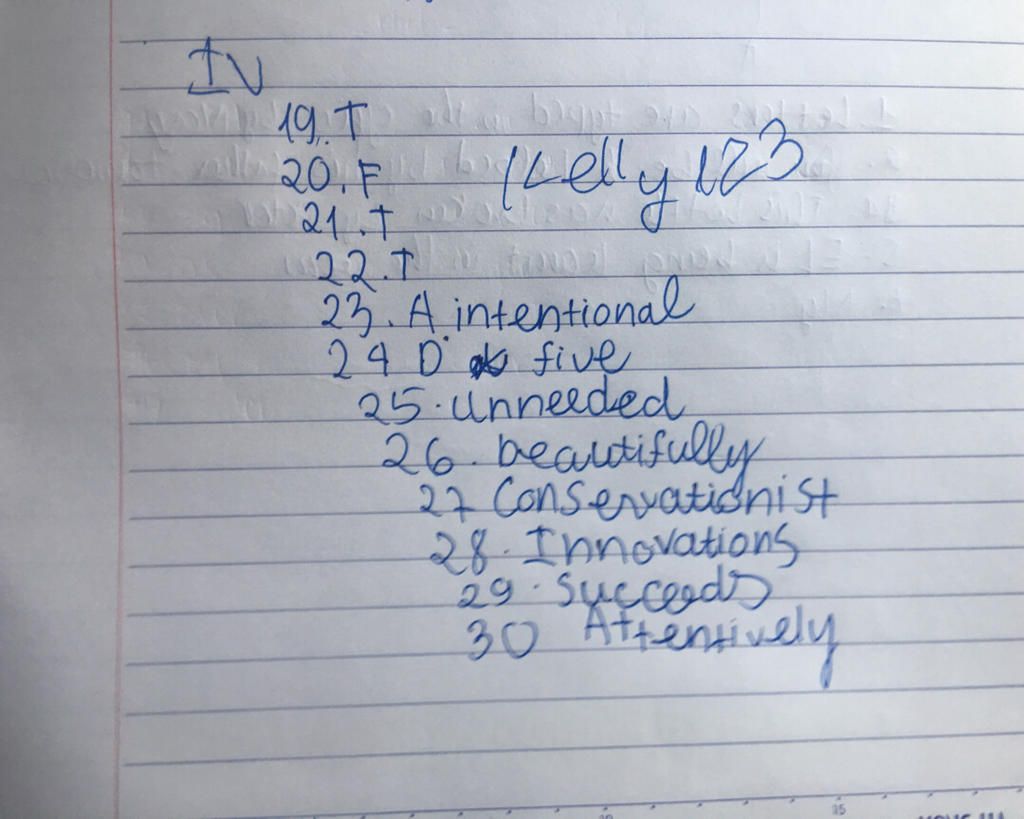 IV
19. T
20. F
Kelly 123
21. T
22. T
23. A intentional
24 D. five
25. unneeded
26. beautifully
27 Conservationist
28. Innovations
29. Succeeds
30 Attentively